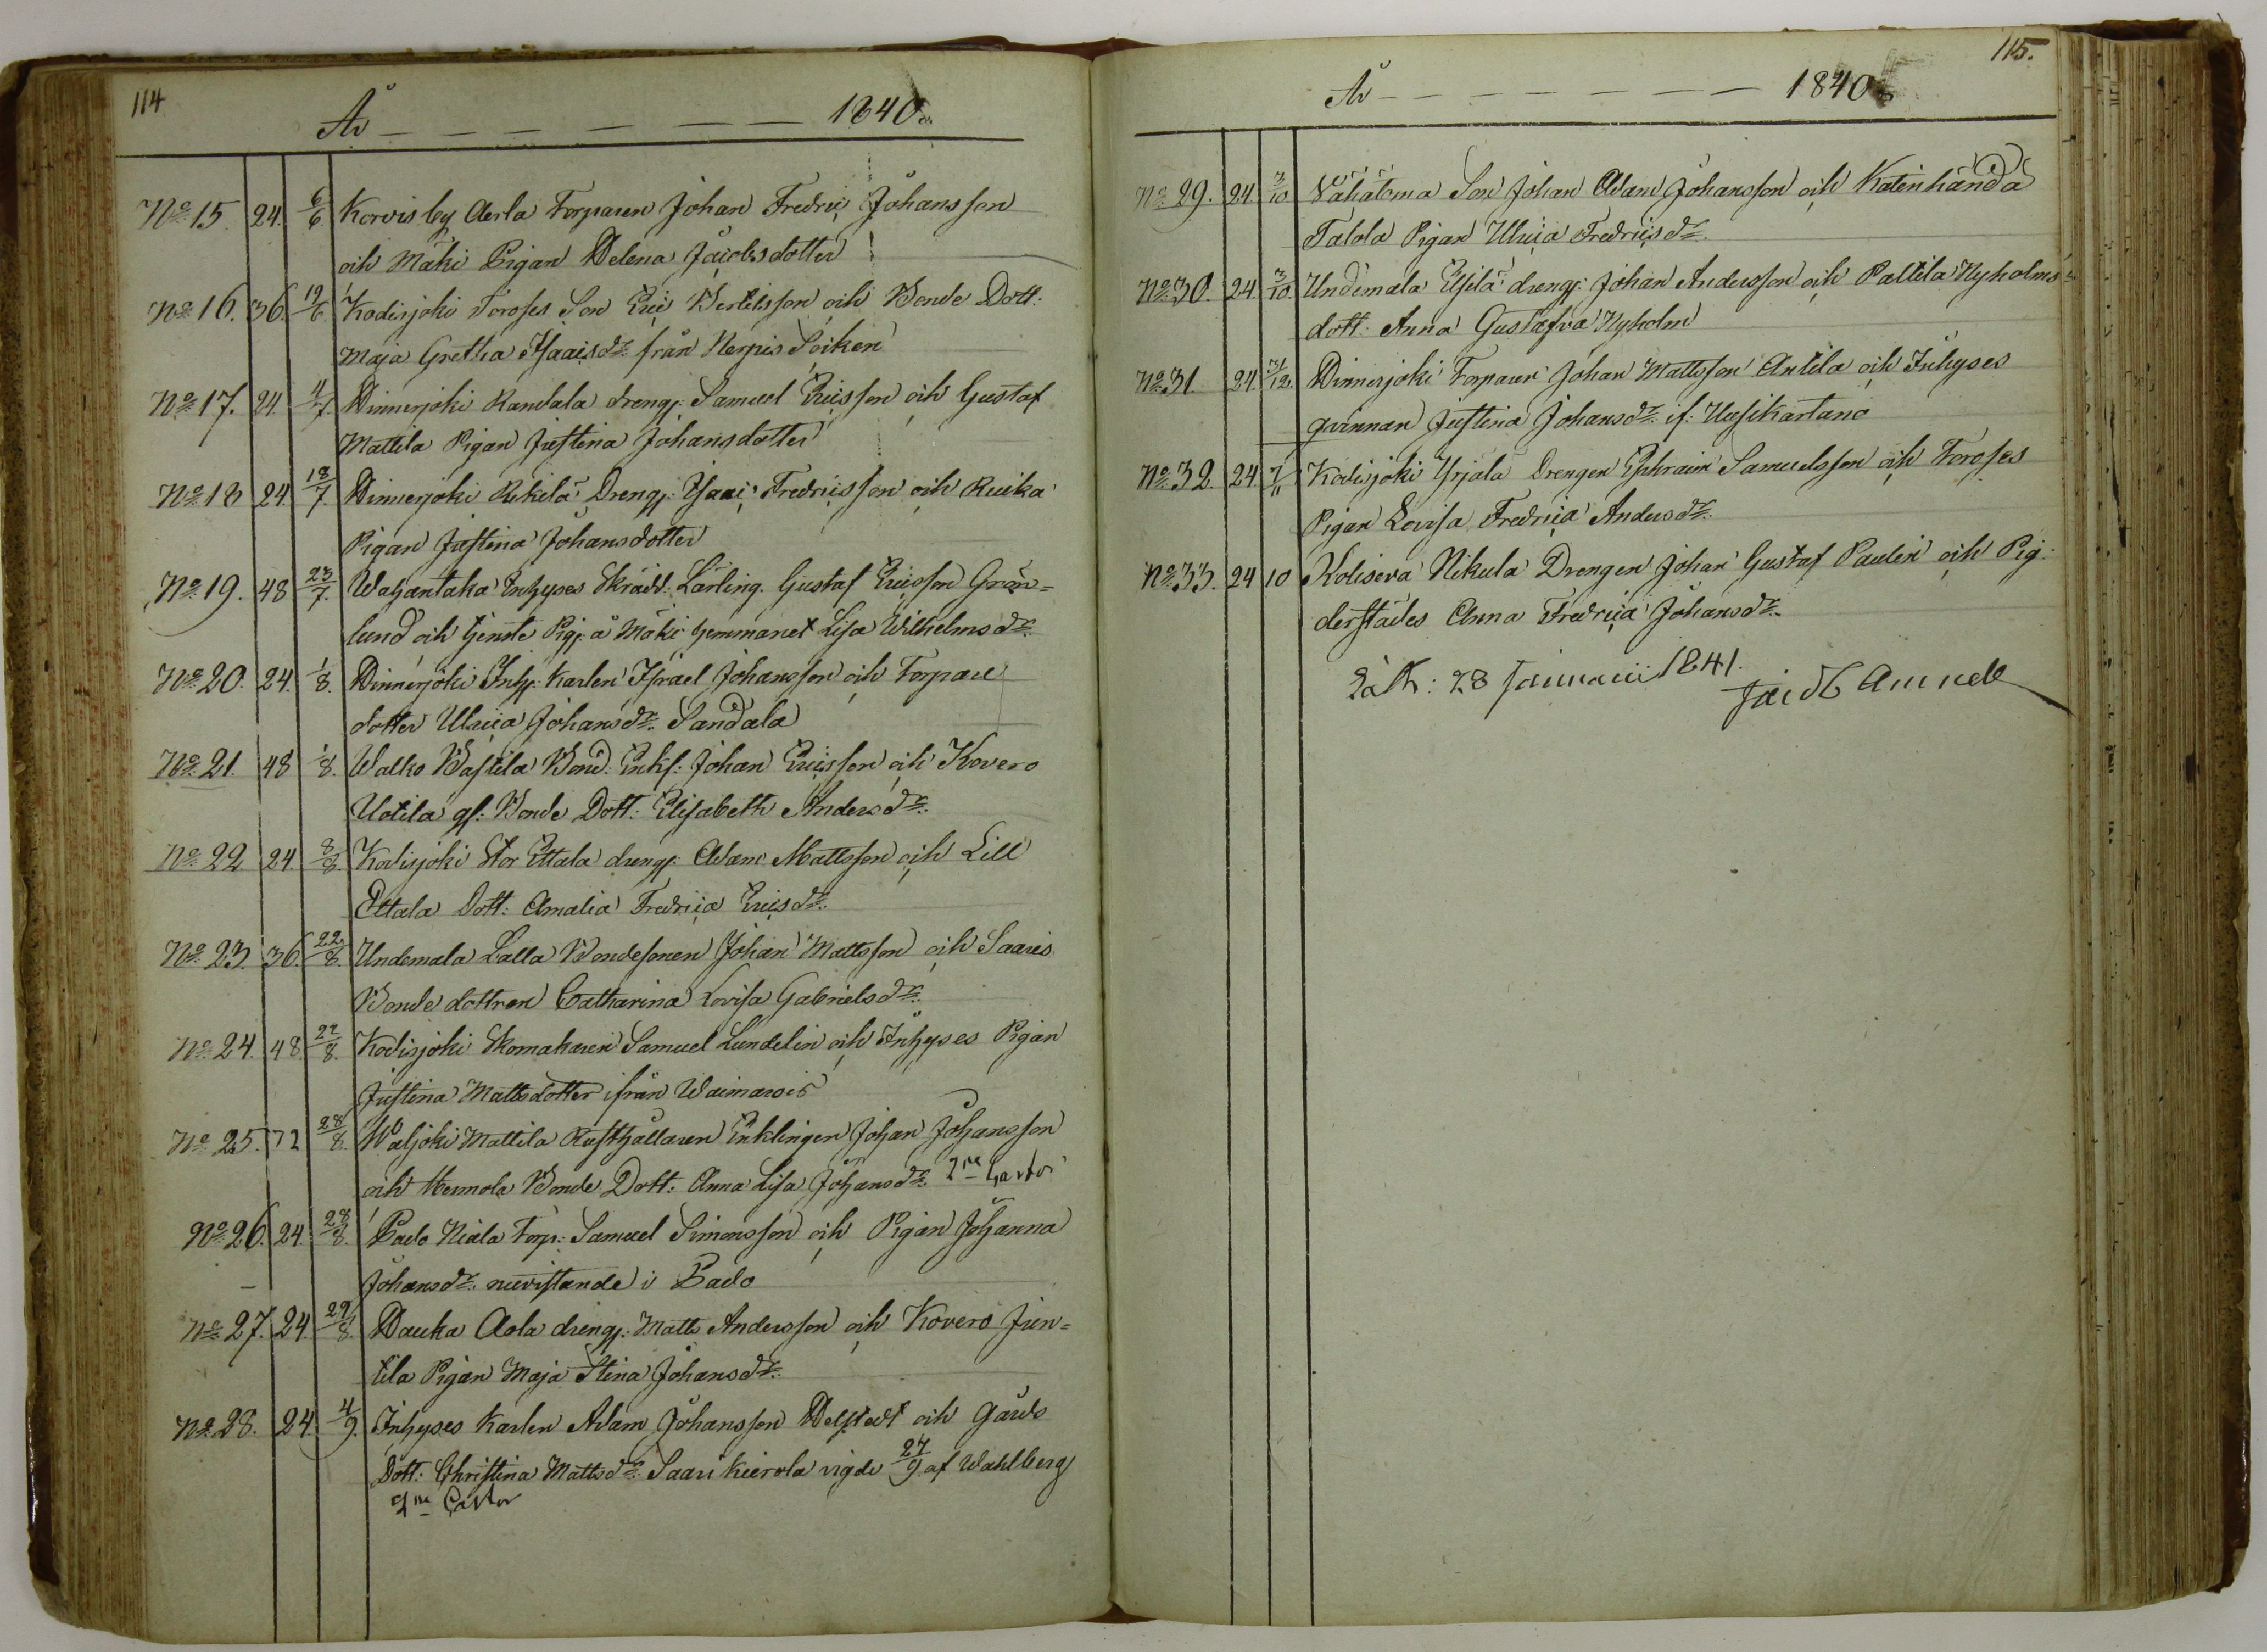 114
År — — — — — — 1840.
No 15. 24. 6/6. Korvis by Aerla Torparen Johan Fredric Johansson
och Mäki Pigan Helena Jacobsdotter
No 16. 36. 19/6. Kodisjoki Toroses Son Eric Bertilsson och Bonde Dott:
Maja Gretha Isaacsdr från Nerpis Socken
No 17. 24 4/7 Hinnerjoki Randala dreng: Samuel Ericsson och Gustaf
Mattila Pigan Justina Johansdotter
No 18 24. 18/7. Hinnerjoki Rekilä Dreng: Isaac Fredricsson och Ruska
Pigan Justina Johansdotter
No 19. 48 23/7. Wahantaka Inhyses Skrädd: Lärling. Gustaf Ericsson Grön=
lund och tjenste Pig: å Mäki hemmanet Lisa Wilhelmsdr
No 20. 24. 1/8. Hinnerjoki Inhy: Karlen Israel Johansson och Torpare
dotter Ulrica Johansdr. Sandala
No 21. 48 1/8. Walko Bastila Bond: Enkl: Johan Ericsson och Kovero
Uotila gl: Bonde Dott: Elisabeth Andersdr.
No 22. 24. 8/8. Kodisjoki Stor Ettala dreng: Adam Mattsson och Lill
Ettala Dott: Amalia Fredrica Ericsdr.
No 23. 36. 22/8. Undemala Lalla Bondesonen Johan Mattsson och Saaris
Bonde dottren Catharina Lovisa Gabrielsdr.
No 24. 48. 22/8. Kodisjoki Skomakaren Samuel Lundelin och Inhyses Pigan
Justina Mattsdotter ifrån Waimarois
No 25. 72 28/8. Waljoki Mattila Rusthållaren Enklingen Johan Johansson
och Hermola Bonde Dott: Anna Lisa Johansdr.
No 26. 24. 28/8. Lado Niala Torp: Samuel Simonsson och Pigan Johanna
Johansdr. nuvistande i Lado
No 27. 24. 29/8. Hauka Aola dreng: Matts Andersson och Kovero Jun=
tila Pigan Maja Stina Johansdr.
No 28. 24. 4/9. Inhyses Karlen Adam Johansson Helstedt och Gårds
Dott: Christina Mattsdr Saari Kierola vigde 27/9 af Wahlberg
115.
År — — — — — — — 1840
No 29. 24 3/10 Vähätoma Son Johan Adam Johansson och Katinhändä
Talola Pigan Ulrica Fredricsdr.
No 30. 24 3/10. Undemala Ejilä dreng: Johan Andersson och Paltila Nyholms
dott: Anna Gustafva Nyholm
No 31 24 31/12. Hinnerjoki Torparen Johan Mattsson Antila och Inhyses
qvinnan Justina Johansdr. if: Uusikartano
No 32. 24. 7/11 Kodisjoki Yrjälä Drengen Ephraim Samuelsson och Toroses
Pigan Lovisa Fredrica Andersdr.
No 33. 24 10 Koliseva Nikula Drengen Johan Gustaf Paulin och Pig:
derstädes Anna Fredrica Johansdr.
28 Januarii 1841.